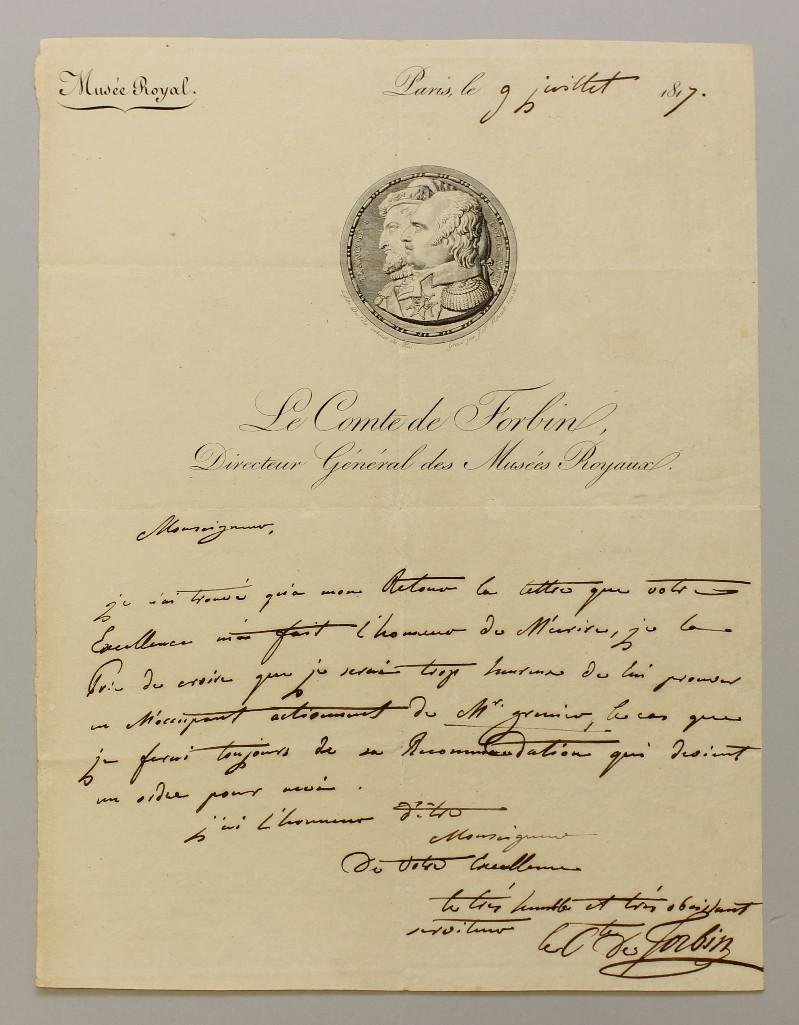 Musée Royal.
Paris, le 9 juillet 1817.
Le Comte de Forbin,
Directeur Général des Musées Royaux.
Monseigneur,
je n'ai trouvé qu'a mon Retour la lettre que votre
Excellence m'a fait l'honneur de M'ecrire, je la
Prie de croire que je serai trop heureux de lui prouver
en M'occupant activement de Mr. granier, le cas que
je ferai toujours de sa Recommendation qui devient
un ordre pour moi.
j'ai l'honneur d'être
Monseigneur
De votre Excellence
le très humble et très obeissant
serviteur
le Cte de Forbin